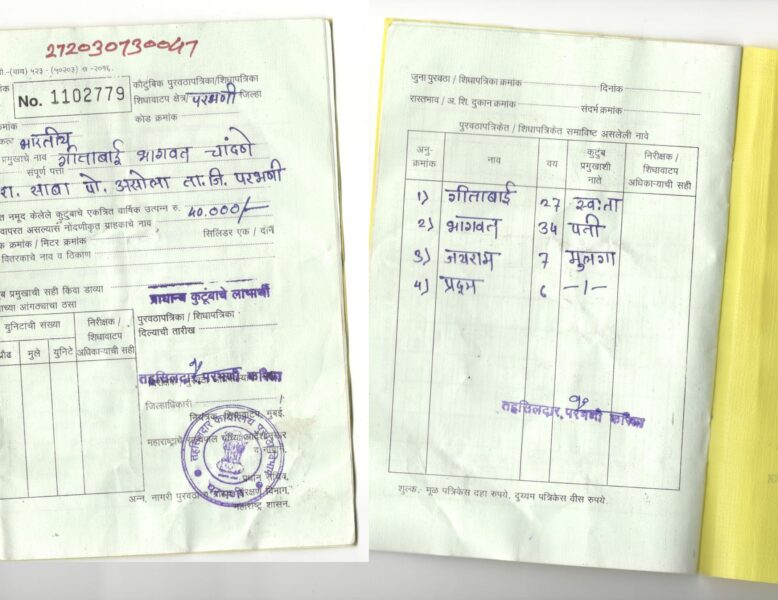 272030730047
No. 1102779
कौटुंबिक पुरवठापत्रिका/शिधापत्रिका
शिधावाटप क्षेत्र/परभणी जिल्हा
कोड क्रमांक
भारतीय
प्रमुखाचे नाव गीताबाई भागवत चांदणे
संपूर्ण पत्ता
रा. साबा पो. असोला ता.जि. परभणी
त नमूद केलेले कुटुंबाचे एकत्रित वार्षिक उत्पन्न रु. 40.000/-
वापरत असल्यास नोंदणीकृत ग्राहकाचे नाव
सिलिंडर एक / दोन
क क्रमांक / मिटर क्रमांक
वितरकाचे नाव व ठिकाण
ब प्रमुखाची सही किंवा डाव्या
च्या आंगठ्याचा ठसा
प्राधान्य कुटूंबाचे लाभार्थी
युनिटाची संख्या
निरीक्षक / शिधावाटप अधिकाऱ्याची सही
प्रौढ मुले युनिटे
पुरवठापत्रिका / शिधापत्रिका
दिल्याची तारीख
तहसिलदार परभणी करिता
जिल्हाधिकारी
नियंत्रक, शिधावाटप, मुंबई.
अन्न, नागरी पुरवठा व ग्राहक संरक्षण विभाग,
महाराष्ट्र शासन.
जुना पुरवठा / शिधापत्रिका क्रमांक दिनांक
रास्तभाव / अ. शि. दुकान क्रमांक संदर्भ क्रमांक
पुरवठापत्रिकेत / शिधापत्रिकेत समाविष्ट असलेली नावे
अनु-क्रमांक नाव वय कुटुंब प्रमुखाशी नाते निरीक्षक / शिधावाटप अधिकाऱ्याची सही
1) गीताबाई 27 स्वःता
2) भागवत 34 पती
3) जयराम 7 मुलगा
4) प्रद्रम 6 -।-
तहसिलदार, परभणी करिता
शुल्क:- मूळ पत्रिकेस दहा रुपये, दुय्यम पत्रिकेस वीस रुपये.